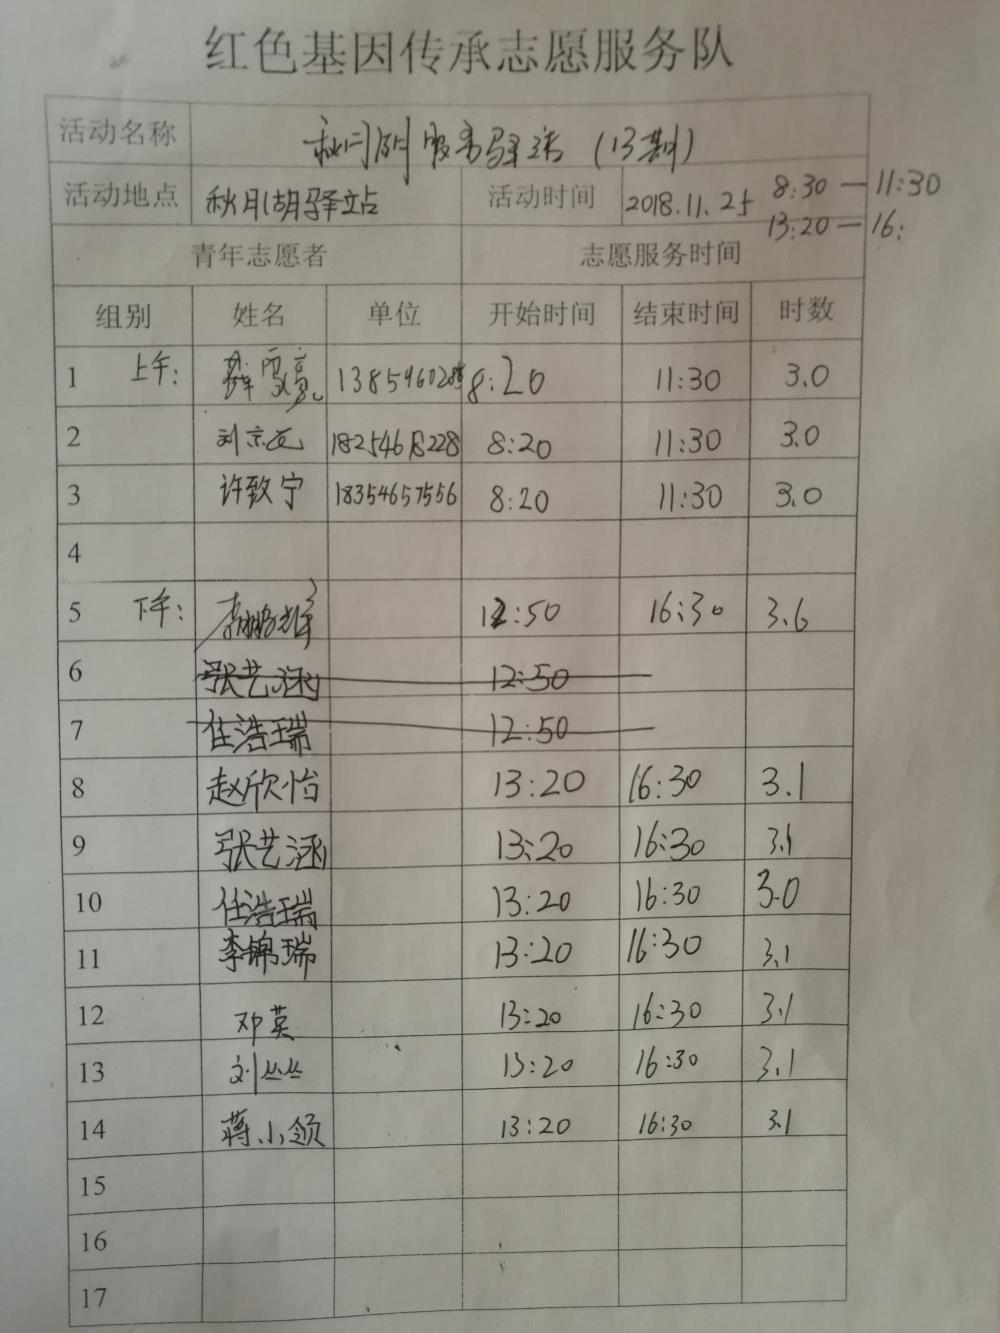 红色基因传承志愿服务队
活动名称 秋月湖服务驿站（13期）
活动地点 秋月湖驿站 活动时间 2018.11.25 8:30—11:30
13:20—16:
青年志愿者 志愿服务时间
组别 姓名 单位 开始时间 结束时间 时数
1 上午: 薛雪亮 8:20 11:30 3.0
2 刘京 18254618228 8:20 11:30 3.0
3 许致宁 18354657556 8:20 11:30 3.0
4
5 下午: 李鹏 12:50 16:30 3.6
6 张艺涵 12:50
7 任浩瑞 12:50
8 赵欣怡 13:20 16:30 3.1
9 张艺涵 13:20 16:30 3.1
10 任浩瑞 13:20 16:30 3.0
11 李锦瑞 13:20 16:30 3.1
12 邓英 13:20 16:30 3.1
13 刘丛丛 13:20 16:30 3.1
14 蒋小领 13:20 16:30 3.1
15
16
17